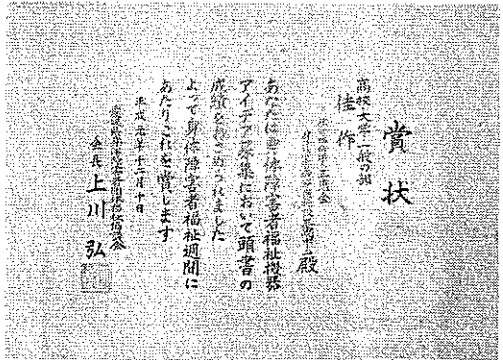 賞状
高校大学一般の部
佳作
殿
あなたは身体障害者福祉機器
アイデア募集において頭書の
成績を收められました
よって身体障害者福祉週間に
あたりこれを賞します
平成元年十二月十日
会長 上川弘